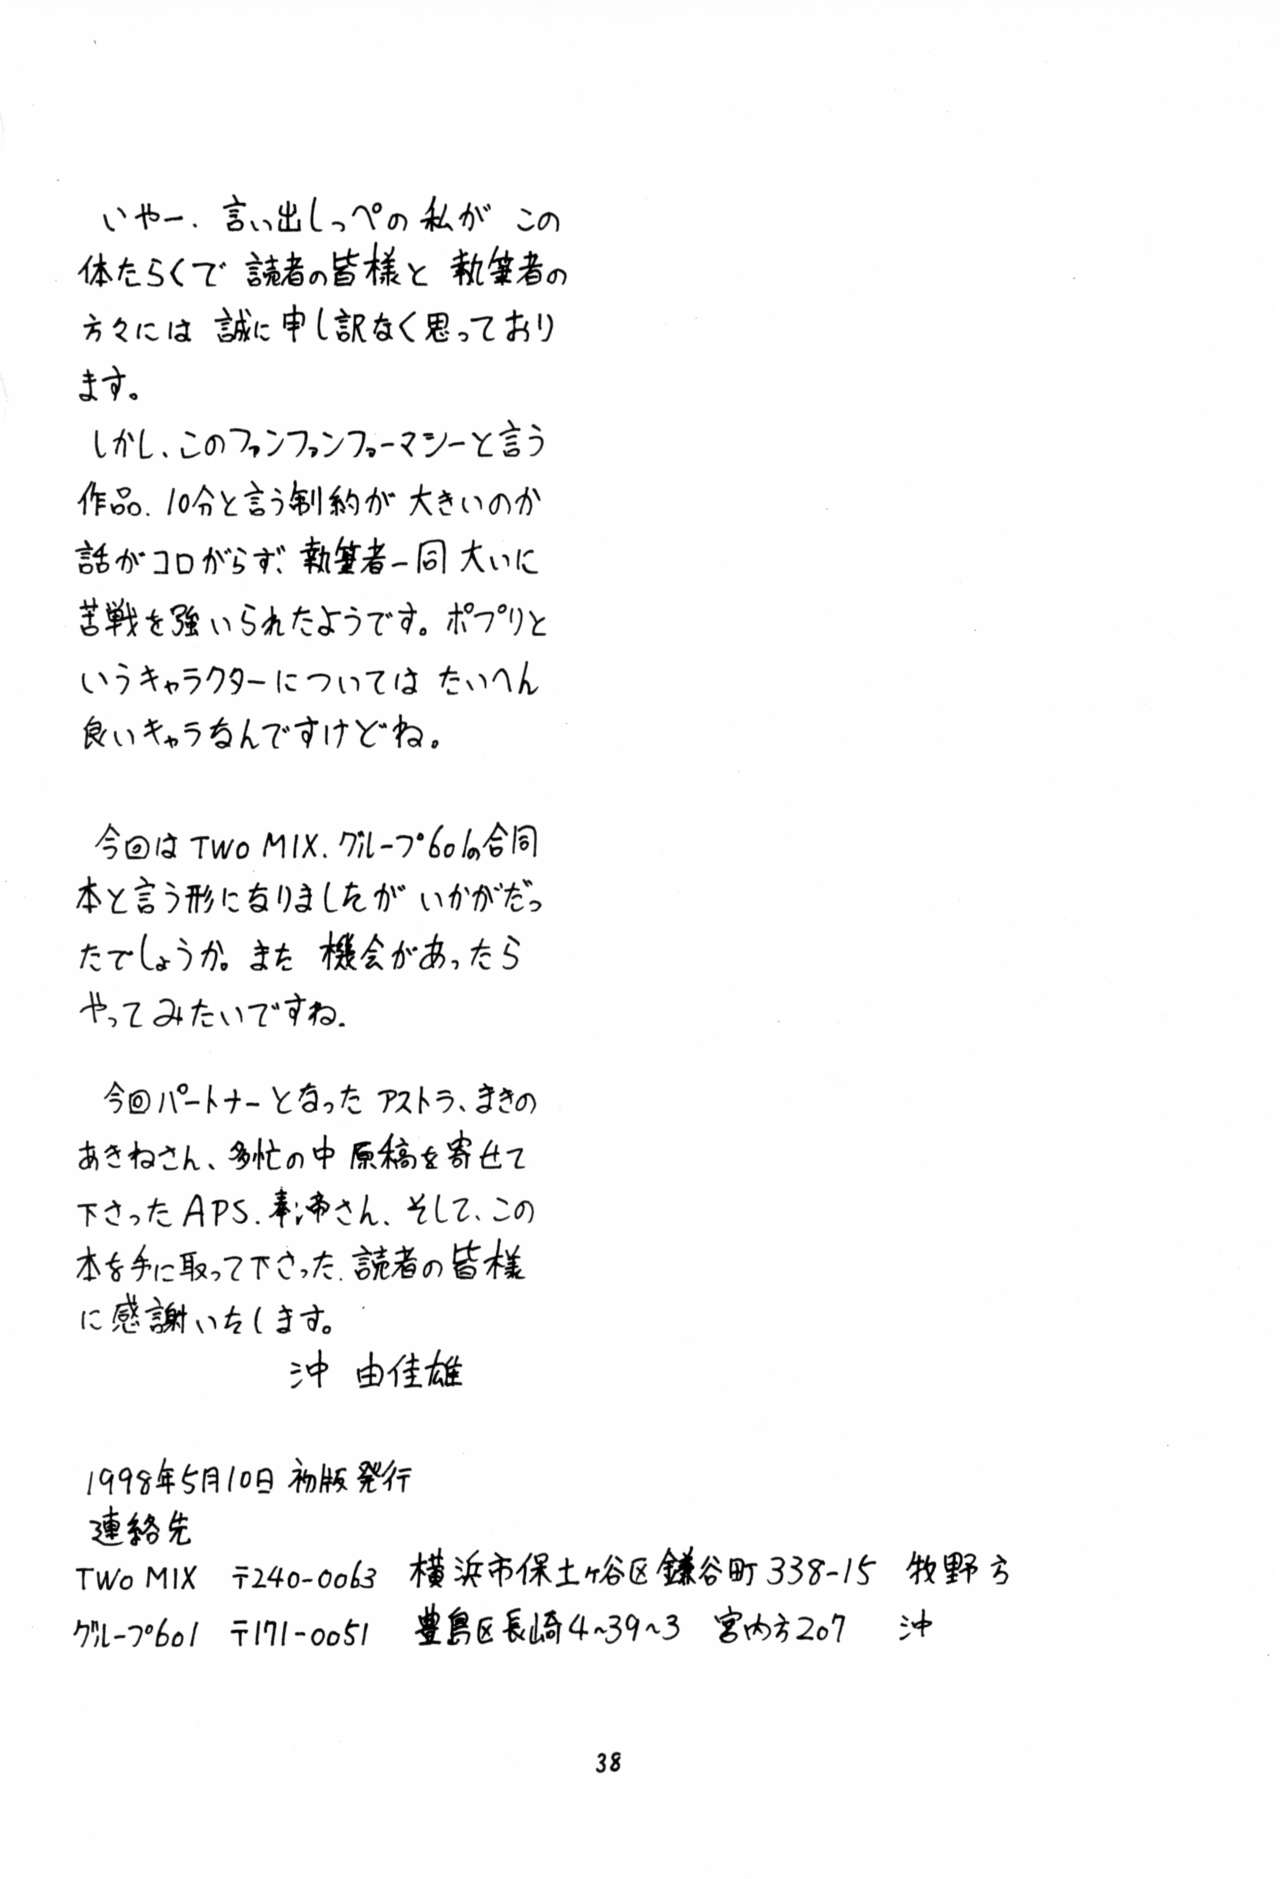 いやー、言い出しっペの私がこの
体たらくで読者の皆様と執筆者の
方々には誠に申し訳なく思っており
ます。
しかし、このファンファンファーマシーと言う
作品、10分と言う制約が大きいのか
話がコロがらず、執筆者一同大いに
苦戦を強いられたようです。ポプリと
いうキャラクターについてはたいへん
良いキャラなんですけどね。
今回はTWO MIX、グループ601の合同
本と言う形になりましたがいかがだっ
たでしょうか。また機会があったら
やってみたいですね。
今回パートナーとなったアストラ、まきの
あきねさん、多忙の中原稿を寄せて
下さったAPS、奉帝さん、そして、この
本を手に取って下さった、読者の皆様
に感謝いたします。
沖 由佳雄
1998年5月10日初版発行
連絡先
TWO MIX 〒240-0063 横浜市保土ヶ谷区鎌谷町338-15 牧野方
グループ601 〒171-0051 豊島区長崎4~39~3 宮内方207 沖
38